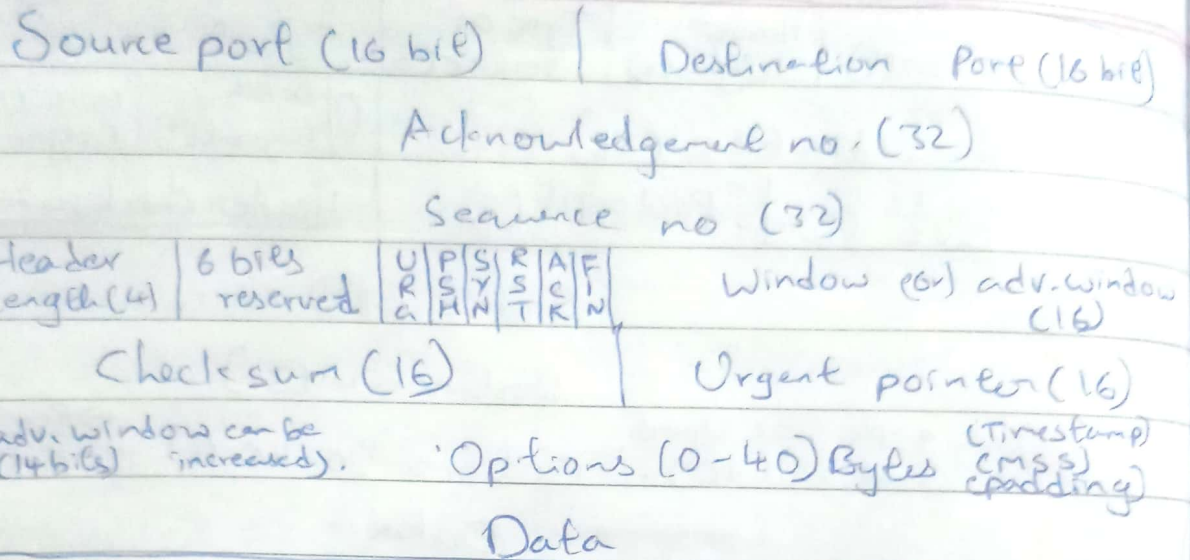 Source port (16 bit) Destination Port (16 bit)
Acknowledgement no. (32)
Sequence no (32)
Header length (4) 6 bits reserved URG PSH SYN RST ACK FIN Window (or) adv. window (16)
Checksum (16) Urgent pointer (16)
adv. window can be (14 bits) increased). Options (0-40) Bytes (Timestamp) (MSS) (padding)
Data